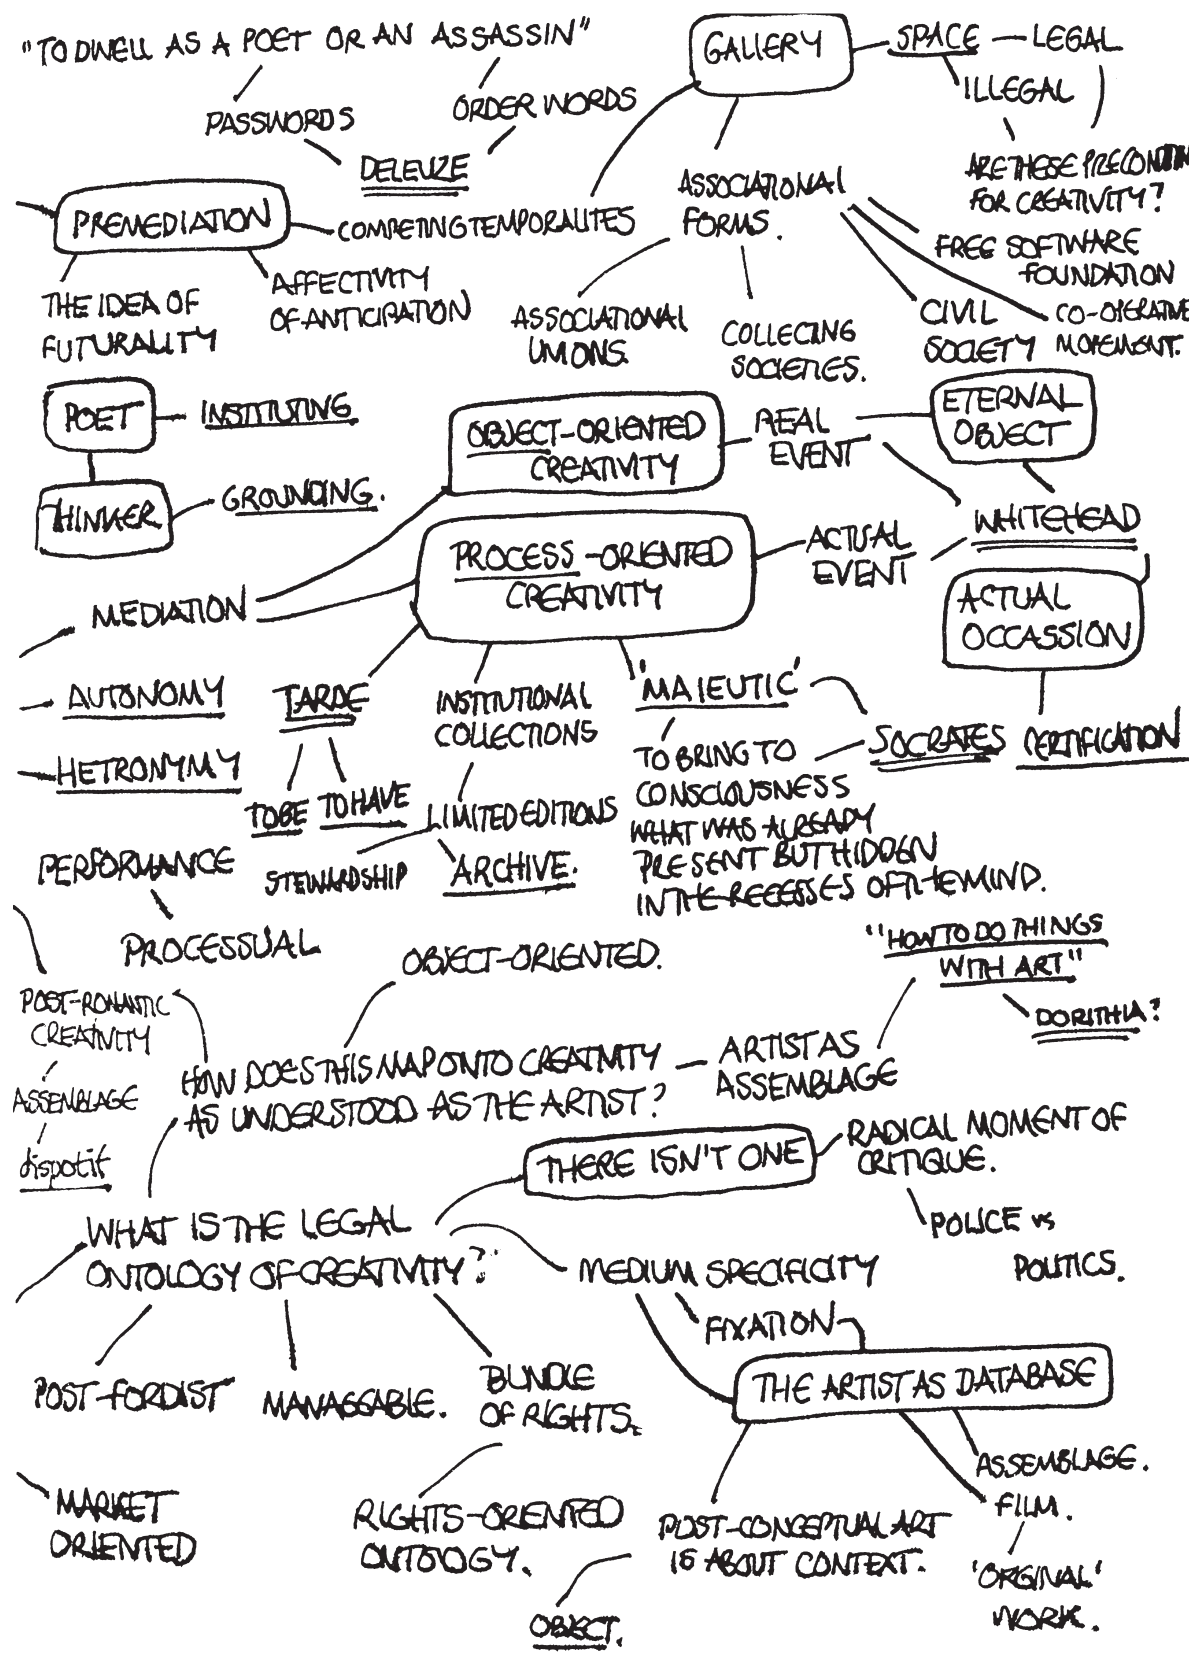 "TO DWELL AS A POET OR AN ASSASSIN"
PASSWORDS
ORDER WORDS
DELEUZE
GALLERY
SPACE
LEGAL
ILLEGAL
ARE THESE PRECONDITI
FOR CREATIVITY?
PREMEDIATION
COMPETING TEMPORALITES
THE IDEA OF
FUTURALITY
AFFECTIVITY
OF ANTICIPATION
ASSOCIATIONAL
FORMS.
FREE SOFTWARE
FOUNDATION
ASSOCIATIONAL
UNIONS.
COLLECING
SOCIETIES.
CIVIL
SOCIETY
CO-OPERATIVE
MOVEMENT.
POET
INSTITUTING
THINKER
GROUNDING.
OBJECT-ORIENTED
CREATIVITY
REAL
EVENT
ETERNAL
OBJECT
WHITEHEAD
PROCESS-ORIENTED
CREATIVITY
ACTUAL
EVENT
ACTUAL
OCCASSION
MEDIATION
AUTONOMY
HETRONYMY
TARDE
TO BE
TO HAVE
INSTITUTIONAL
COLLECTIONS
LIMITED EDITIONS
STEWARDSHIP
ARCHIVE.
'MAIEUTIC'
SOCRATES
CERTIFICATION
TO BRING TO
CONSCIOUSNESS
WHAT WAS ALREADY
PRESENT BUT HIDDEN
IN THE RECESSES OF THE MIND.
PERFORMANCE
PROCESSUAL
OBJECT-ORIENTED.
"HOW TO DO THINGS
WITH ART"
DORITHIA?
POST-ROMANTIC
CREATIVITY
ASSEMBLAGE
dispotif
HOW DOES THIS MAP ONTO CREATIVITY
AS UNDERSTOOD AS THE ARTIST?
ARTIST AS
ASSEMBLAGE
THERE ISN'T ONE
RADICAL MOMENT OF
CRITIQUE.
POLICE vs
POLITICS.
WHAT IS THE LEGAL
ONTOLOGY OF CREATIVITY?"
MEDIUM SPECIFICITY
FIXATION
THE ARTIST AS DATABASE
POST-FORDIST
MANAGEABLE.
BUNDLE
OF RIGHTS.
ASSEMBLAGE.
FILM.
'ORGINAL'
WORK.
MARKET
ORIENTED
RIGHTS-ORIENTED
ONTOLOGY.
OBJECT.
POST-CONCEPTUAL ART
IS ABOUT CONTEXT.